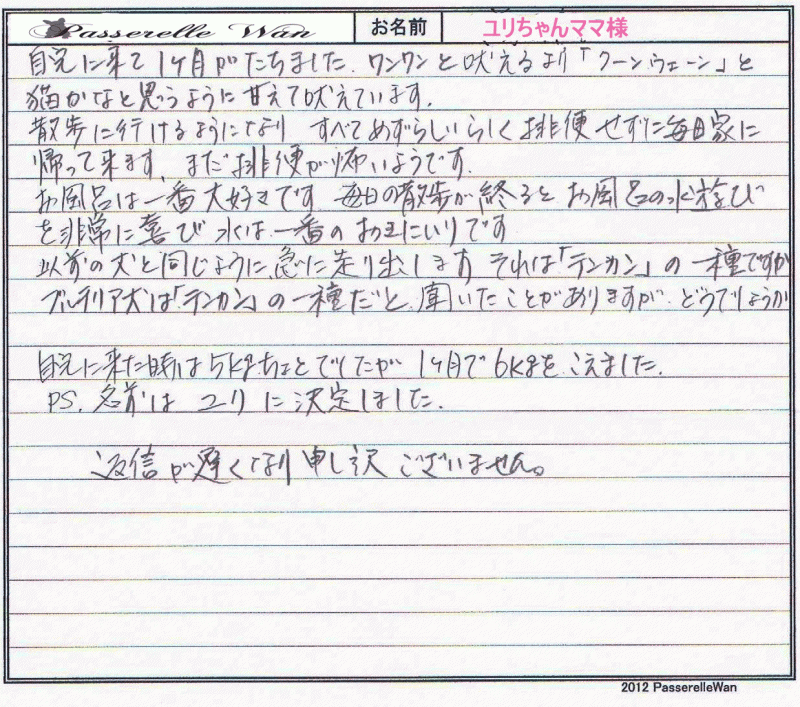 Passerelle Wan お名前 ユリちゃんママ様
自宅に来て1ヶ月がたちました。ワンワンと吠えるより「クーンウェーン」と
猫かなと思うように甘えて吠えています。
散歩に行けるようになり すべてめずらしいらしく排便せずに毎日家に
帰って来ます。まだ排便が怖いようです。
お風呂は一番大好きです 毎日の散歩が終るとお風呂の水遊び
を非常に喜び 水は一番のお気にいりです
以前の犬と同じように、急に走り出します それは「テンカン」の一種ですか
ブルテリア犬は「テンカン」の一種だと、聞いたことがありますが、どうでしょうか
自宅に来た時は5kgちょとでしたが 1ヶ月で6kgをこえました。
PS. 名前は ユリ に決定しました。
返信が遅くなり申し訳ございません。
2012 PasserelleWan